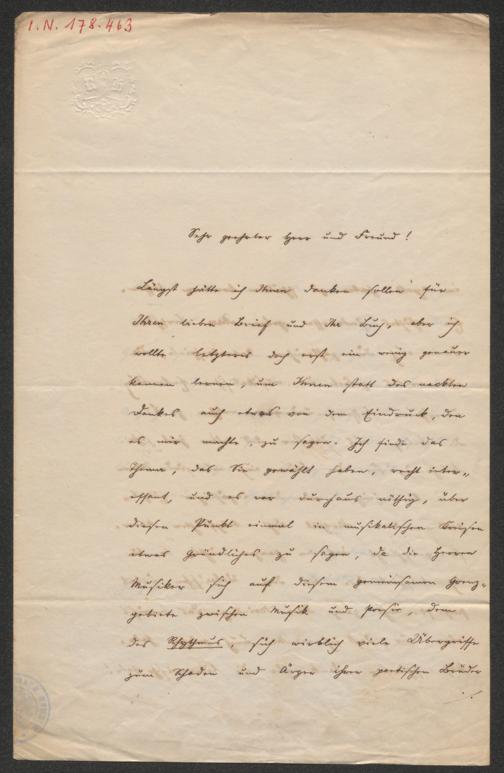 I.N. 178.463
Sehr geehrter Herr und Freund!
Längst hätte ich Ihnen danken sollen für
Ihren lieben Brief und Ihr Buch, aber ich
wollte letzteres doch erst ein wenig genauer
kennen lernen, um Ihnen statt des nackten
Dankes auch etwas von dem Eindruck, den
es mir machte, zu sagen. Ich finde das
Thema, das Sie gewählt haben, recht inter-
essant, und es war durchaus nöthig, über
diesen Punkt einmal in musikalischen Kreisen
etwas Gründliches zu sagen, da die Herren
Musiker sich auf diesem gemeinsamen Grenz-
gebiete zwischen Musik und Poesie, dem
des Rhythmus, sich wirklich viele Übergriffe
zum Schaden und Ärger ihrer poetischen Brüder